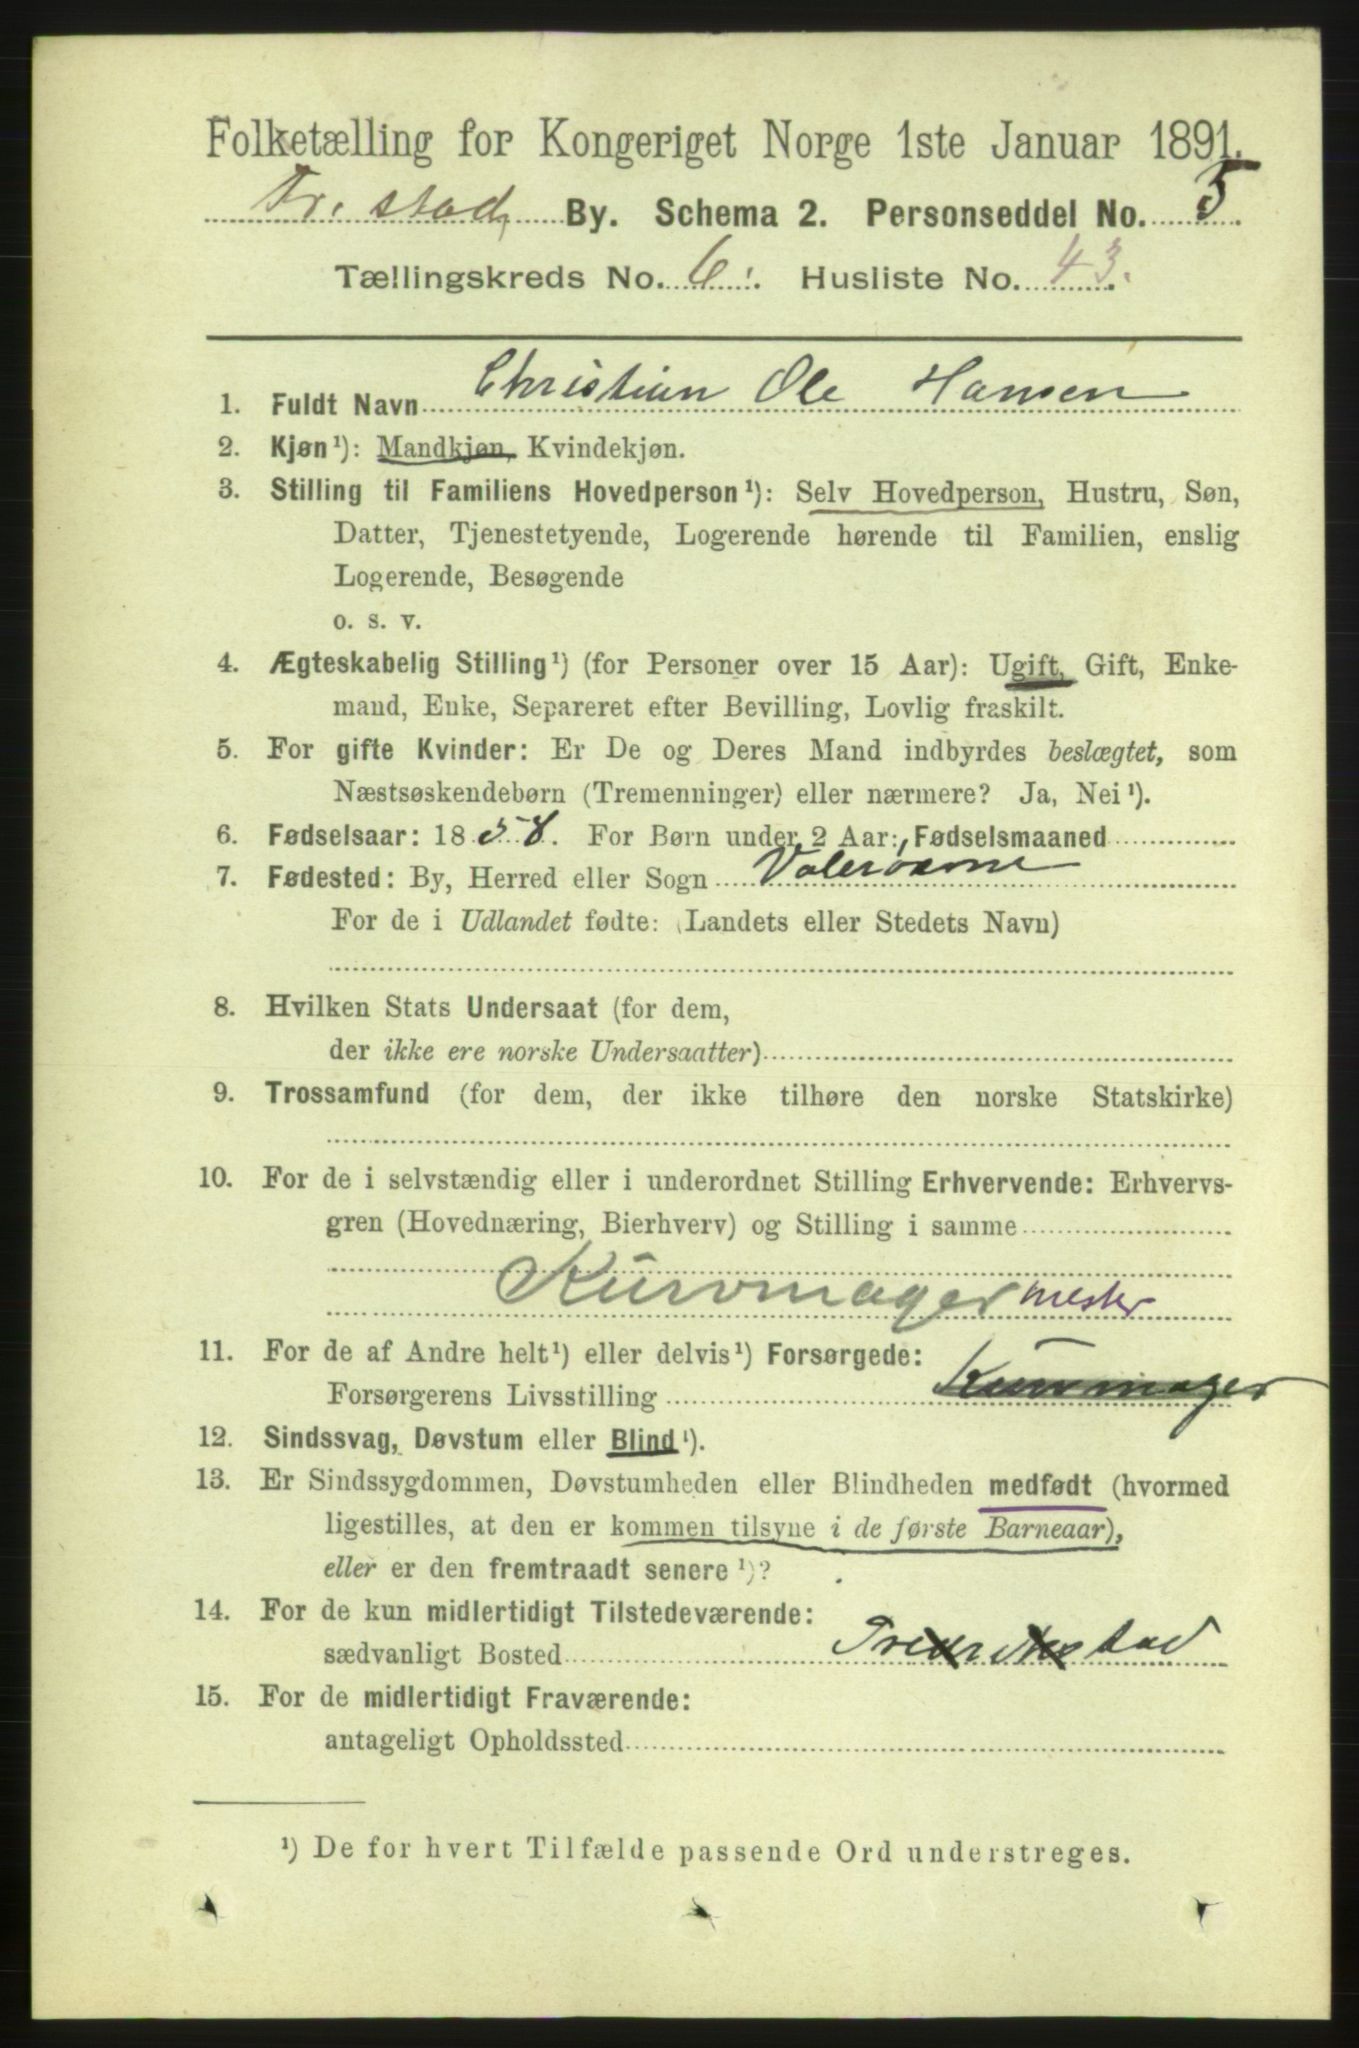 Folketælling for Kongeriget Norge 1ste Januar 1891.
Fr.stad By. Schema 2. Personseddel No. 5.
Tællingskreds No. 6. Husliste No. 43.
1. Fuldt Navn Christian Ole Hansen
2. Kjøn¹): Mandkjøn, Kvindekjøn.
3. Stilling til Familiens Hovedperson¹): Selv Hovedperson, Hustru, Søn,
Datter, Tjenestetyende, Logerende hørende til Familien, enslig
Logerende, Besøgende
o. s. v.
4. Ægteskabelig Stilling¹) (for Personer over 15 Aar): Ugift, Gift, Enke-
mand, Enke, Separeret efter Bevilling, Lovlig fraskilt.
5. For gifte Kvinder: Er De og Deres Mand indbyrdes beslægtet, som
Næstsøskendebørn (Tremenninger) eller nærmere? Ja, Nei¹).
6. Fødselsaar: 1858. For Børn under 2 Aar: Fødselsmaaned
7. Fødested: By, Herred eller Sogn
For de i Udlandet fødte: (Landets eller Stedets Navn)
8. Hvilken Stats Undersaat (for dem,
der ikke ere norske Undersaatter)
9. Trossamfund (for dem, der ikke tilhøre den norske Statskirke)
10. For de i selvstændig eller i underordnet Stilling Erhvervende: Erhvervs-
gren (Hovednæring, Bierhverv) og Stilling i samme
Kurvmager mester
11. For de af Andre helt¹) eller delvis¹) Forsørgede:
Forsørgerens Livsstilling Kurvmager
12. Sindssvag, Døvstum eller Blind¹).
13. Er Sindssygdommen, Døvstumheden eller Blindheden medfødt (hvormed
ligestilles, at den er kommen tilsyne i de første Barneaar),
eller er den fremtraadt senere¹)?
14. For de kun midlertidigt Tilstedeværende:
sædvanligt Bosted
15. For de midlertidigt Fraværende:
antageligt Opholdssted
¹) De for hvert Tilfælde passende Ord understreges.